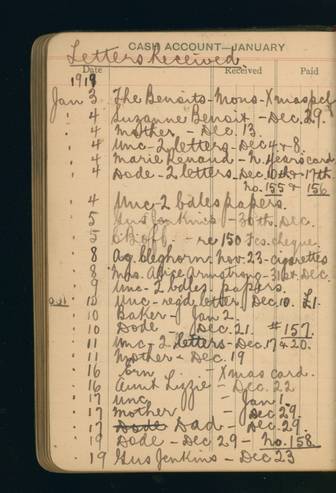 CASH ACCOUNT—JANUARY
Letters Received
Date Received Paid
1919
Jan 3 The Benoits - Mons - Xmas pcd
" 4 Suzanne Benoit - Dec. 29.
" 4 Mother - Dec. 13.
" 4 Unc - 2 letters - Dec 4 & 8.
" 4 Marie Renaud - N. Years card
" 4 Dode - 2 letters - Dec. 10th & 17th
No. 155 & 156
" 4 Unc - 2 bdles papers.
" 5 Gus Jenkins - 30th Dec.
" 5 - re 150 Fcs. cheque.
" 8 Ag. Cleghorn. Nov. 23 - cigarettes
" 8 Mrs. Alice Armstrong - 31st Dec.
" 9 Unc - 2 bdles. papers.
" 10 Unc - regd letter Dec 10. £1.
" 10 Baker - Jan 2.
" 10 Dode - Dec. 21. #157.
" 11 Unc - 2 letters - Dec. 17 & 20.
" 11 Mother - Dec. 19
" 16 Ern - Xmas card.
" 16 Aunt Lizzie - Dec. 22
" 17 Unc - Jan 1.
" 17 Mother - Dec 29.
" 17 Dode Dad - Dec. 29.
" 19 Dode - Dec 29 - No. 158
" 19 Gus Jenkins - Dec 23